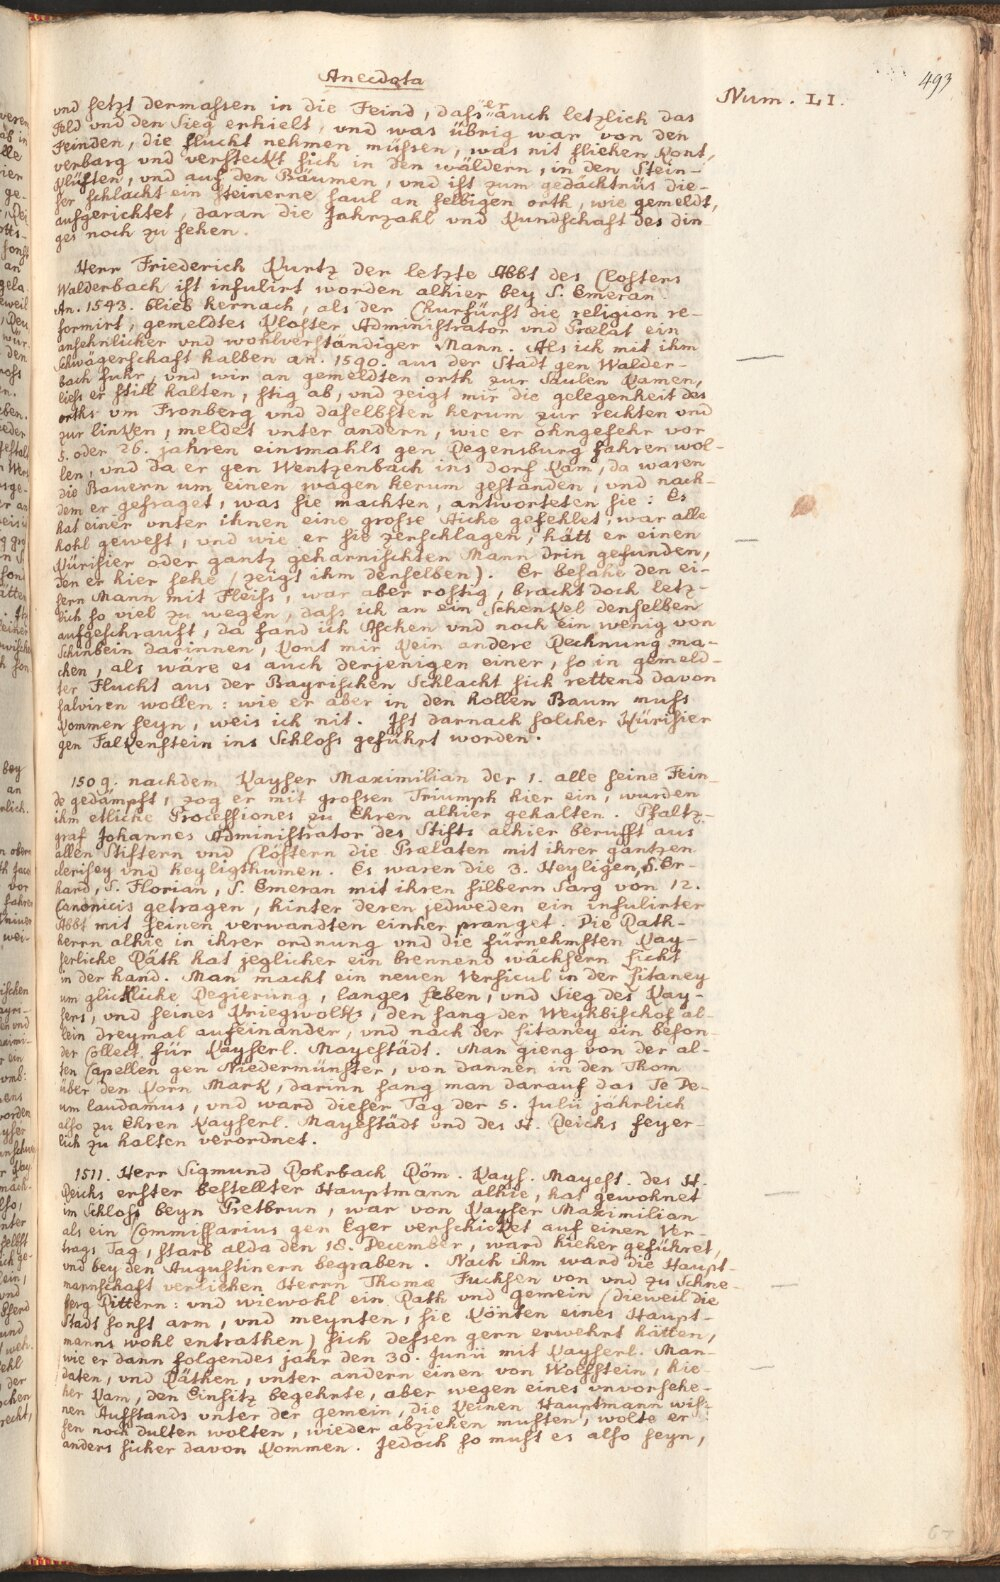 Anecdota
Num. LI.
493
vnd setzt dermassen in die Feind, dass er auch letzlich das
Feld vnd den Sieg erhielt, vnd was übrig war von den
Feinden, die flucht nehmen müssen, was nit fliehen Kont,
verbarg vnd versteckt sich in den wäldern, in den Stein-
Klüften, vnd auf den Bäumen, vnd ist zum gedächtnüs die-
ser schlacht ein steinerne saul an selbigen orth, wie gemeldt,
aufgerichtet, daran die Jahrzahl vnd Kundschaft des din-
ges noch zu sehen.
Herr Friederich Kurtz der letzte Abbt des Closters
Walderbach ist infulirt worden alhier bey S. Emeran
An. 1543. blieb hernach, als der Churfürst die religion re-
formirt, gemeldtes Kloster Administrator vnd Prælat ein
ansehnlicher vnd wohlverständiger Mann. Als ich mit ihm
Schwägerschaft halben an. 1590. aus der Stadt gen Walder-
bach fuhr, vnd wir an gemeldten orth zur Saulen Kamen,
liess er still halten, stig ab, vnd zeigt mir die gelegenheit des
orths vm Fronberg vnd daselbsten herum zur rechten vnd
zur linken, meldet vnter andern, wie er ohngefehr vor
5. oder 26. jahren einsmahls gen Regensburg fahren wol-
len, vnd da er gen Wentzenbach ins dorf Kam, da waren
die Bauern um einen wagen herum gestanden, vnd nach-
dem er gefraget, was sie machten, antworteten sie: Es
hat einer vnter ihnen eine grosse Aiche gefehlet, war alle
hohl gewest, vnd wie er sie zerschlagen, hätt er einen
Kürisier oder gantz geharnischten Mann drin gefunden,
den er hier sehe (zeigt ihm denselben). Er besahe den ei-
sern Mann mit Fleiss, war aber rostig, bracht doch letz-
lich so viel zu wegen, dass ich an ein Schenkel denselben
aufgeschrauft, da fand ich Aschen vnd noch ein wenig von
Schinbein darinnen, Kont mir Kein andere Rechnung ma-
chen, als wäre es auch derjenigen einer, so in gemeld-
ter Flucht aus der Bayrischen Schlacht sich rettend davon
salviren wollen: wie er aber in den hollen Baum muss
Kommen seyn, weis ich nit. Ist darnach solcher Kürisier
gen Falkenstein ins Schloss geführt worden.
1509. nachdem Kayser Maximilian der 1. alle seine Fein-
de gedämpft, zog er mit grossen Triumph hier ein, wurden
ihm etliche Processiones zu Ehren alhier gehalten. Pfaltz-
graf Johannes Administrator des Stifts alhier berufft aus
allen Stiftern vnd Clöstern die Prælaten mit ihrer gantzen
clerisey vnd heyligthumen. Es waren die 3. Heyligen, S. Er-
hard, S. Florian, S. Emeran mit ihren silbern Sarg von 12.
Canonicis getragen, hinter deren jedweden ein infulirter
Abbt mit seinen verwandten einher pranget. Die Rath-
herrn alhie in ihrer ordnung vnd die fürnehmsten Kay-
serliche Räth hat jeglicher ein brennend wächsern Licht
in der hand. Man macht ein neuen Versicul in der Litaney
um glickliche Regierung, langes Leben, vnd Sieg des Kay-
sers, vnd seines Kriegsvolks, den sang der Weyhbischof al-
lein dreymal aufeinander, vnd nach der Litaney ein beson-
der Collect für Kayserl. Mayestädt. Man gieng von der al-
ten Capellen gen Niedermünster, von dannen in den Thom
über den Korn Mark, darinn sang man darauf das Te De-
um laudamus, vnd ward dieser Tag der 5. Julii jährlich
also zu Ehren Kayserl. Mayestädt vnd des H. Reichs feyer-
lich zu halten verordnet.
1511. Herr Sigmund Rohrbach Röm. Kays. Mayest. des H.
Reichs erster bestellter Hauptmann alhie, hat gewohnet
im Schloss beyn Pretbrun, war von Kayser Maximilian
als ein Commissarius gen Eger verschicket auf einen Ver-
trags Tag, starb alda den 18. December, ward hieher geführet,
vnd bey den Augustinern begraben. Nach ihm ward die Haupt-
mannschaft verliehen Herrn Thomæ Fuchsen von vnd zu Schne-
berg Rittern: vnd wiewohl ein Rath vnd gemein (dieweil die
Stadt sonst arm, vnd meynten, sie Könten eines Haupt-
manns wohl entrathen) sich dessen gern erwehrt hätten,
wie er dann folgendes jahr den 30. Junii mit Kayserl. Man-
daten, vnd Räthen, vnter andern einen von Wolfstein, hie-
her Kam, den Einsitz begehrte, aber wegen eines vnvorsehe-
nen Aufstands vnter der gemein, die Keinen Hauptmann wis-
sen noch dulten wolten, wieder abziehen musten, wolte er
anders sicher davon Kommen. Jedoch so must es also seyn,